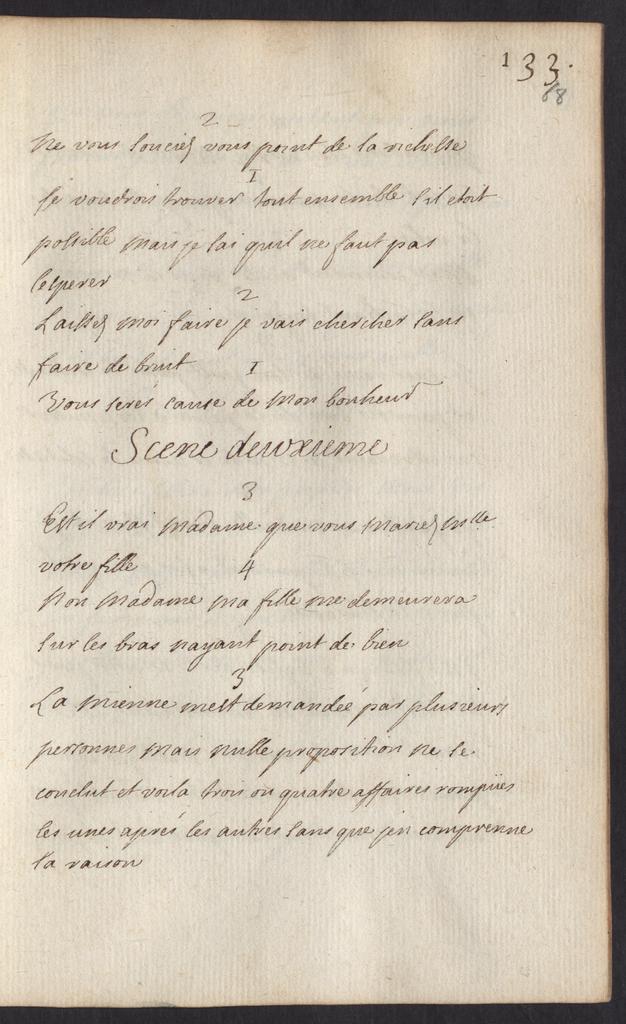 133.
68
2
Ne vous souciés vous point de la richesse
1
Je voudrois trouver tout ensemble sil etoit
possible mais je sai quil ne faut pas
lesperer
2
Laissés moi faire je vais chercher sans
faire de bruit
1
Vous serés cause de mon bonheur
Scene deuxieme
3
Est il vrai madame que vous mariés mlle
votre fille
4
Non madame ma fille me demeurera
sur les bras nayant point de bien
3
La mienne mest demandée par plusieurs
personnes mais nulle proposition ne se
conclut et voila trois ou quatre affaires rompües
les unes aprés les autres sans que jen comprenne
la raison